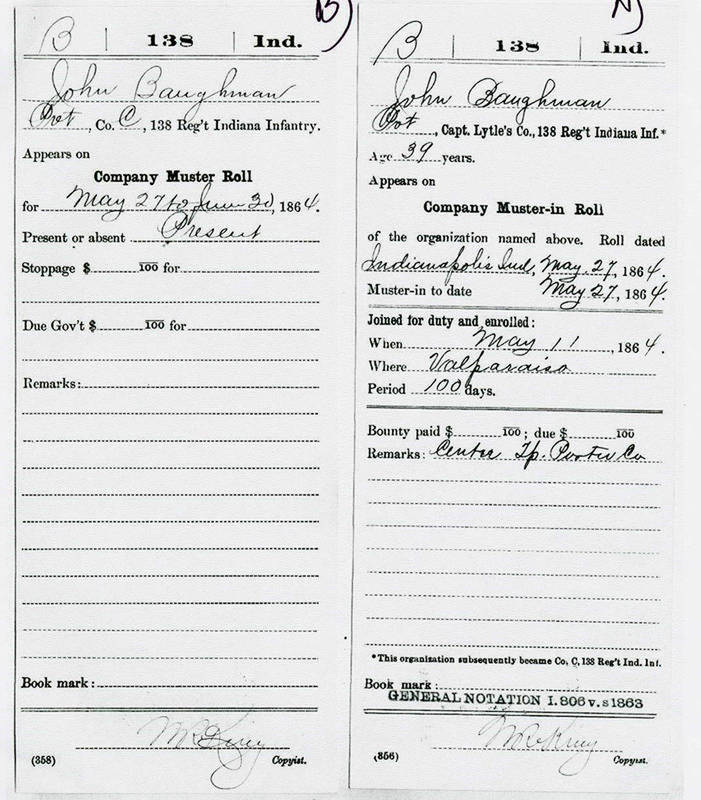 B)
B | 138 | Ind.
John Baughman
Pvt, Co. C, 138 Reg't Indiana Infantry.
Appears on
Company Muster Roll
for May 27 to June 30, 1864.
Present or absent Present
Stoppage $ 100 for
Due Gov't $ 100 for
Remarks:
Book mark:
(358) Copyist.
N)
B | 138 | Ind.
John Baughman
Pvt, Capt. Lytle's Co., 138 Reg't Indiana Inf.*
Age 39 years.
Appears on
Company Muster-in Roll
of the organization named above. Roll dated
Indianapolis Ind, May. 27, 1864.
Muster-in to date May 27, 1864.
Joined for duty and enrolled:
When May 11, 1864.
Where Valparaiso
Period 100 days.
Bounty paid $ 100; due $ 100
Remarks: Center Tp. Porter Co
*This organization subsequently became Co. C, 138 Reg't Ind. Inf.
Book mark:
GENERAL NOTATION I. 806 v. s 1863
(356) Copyist.